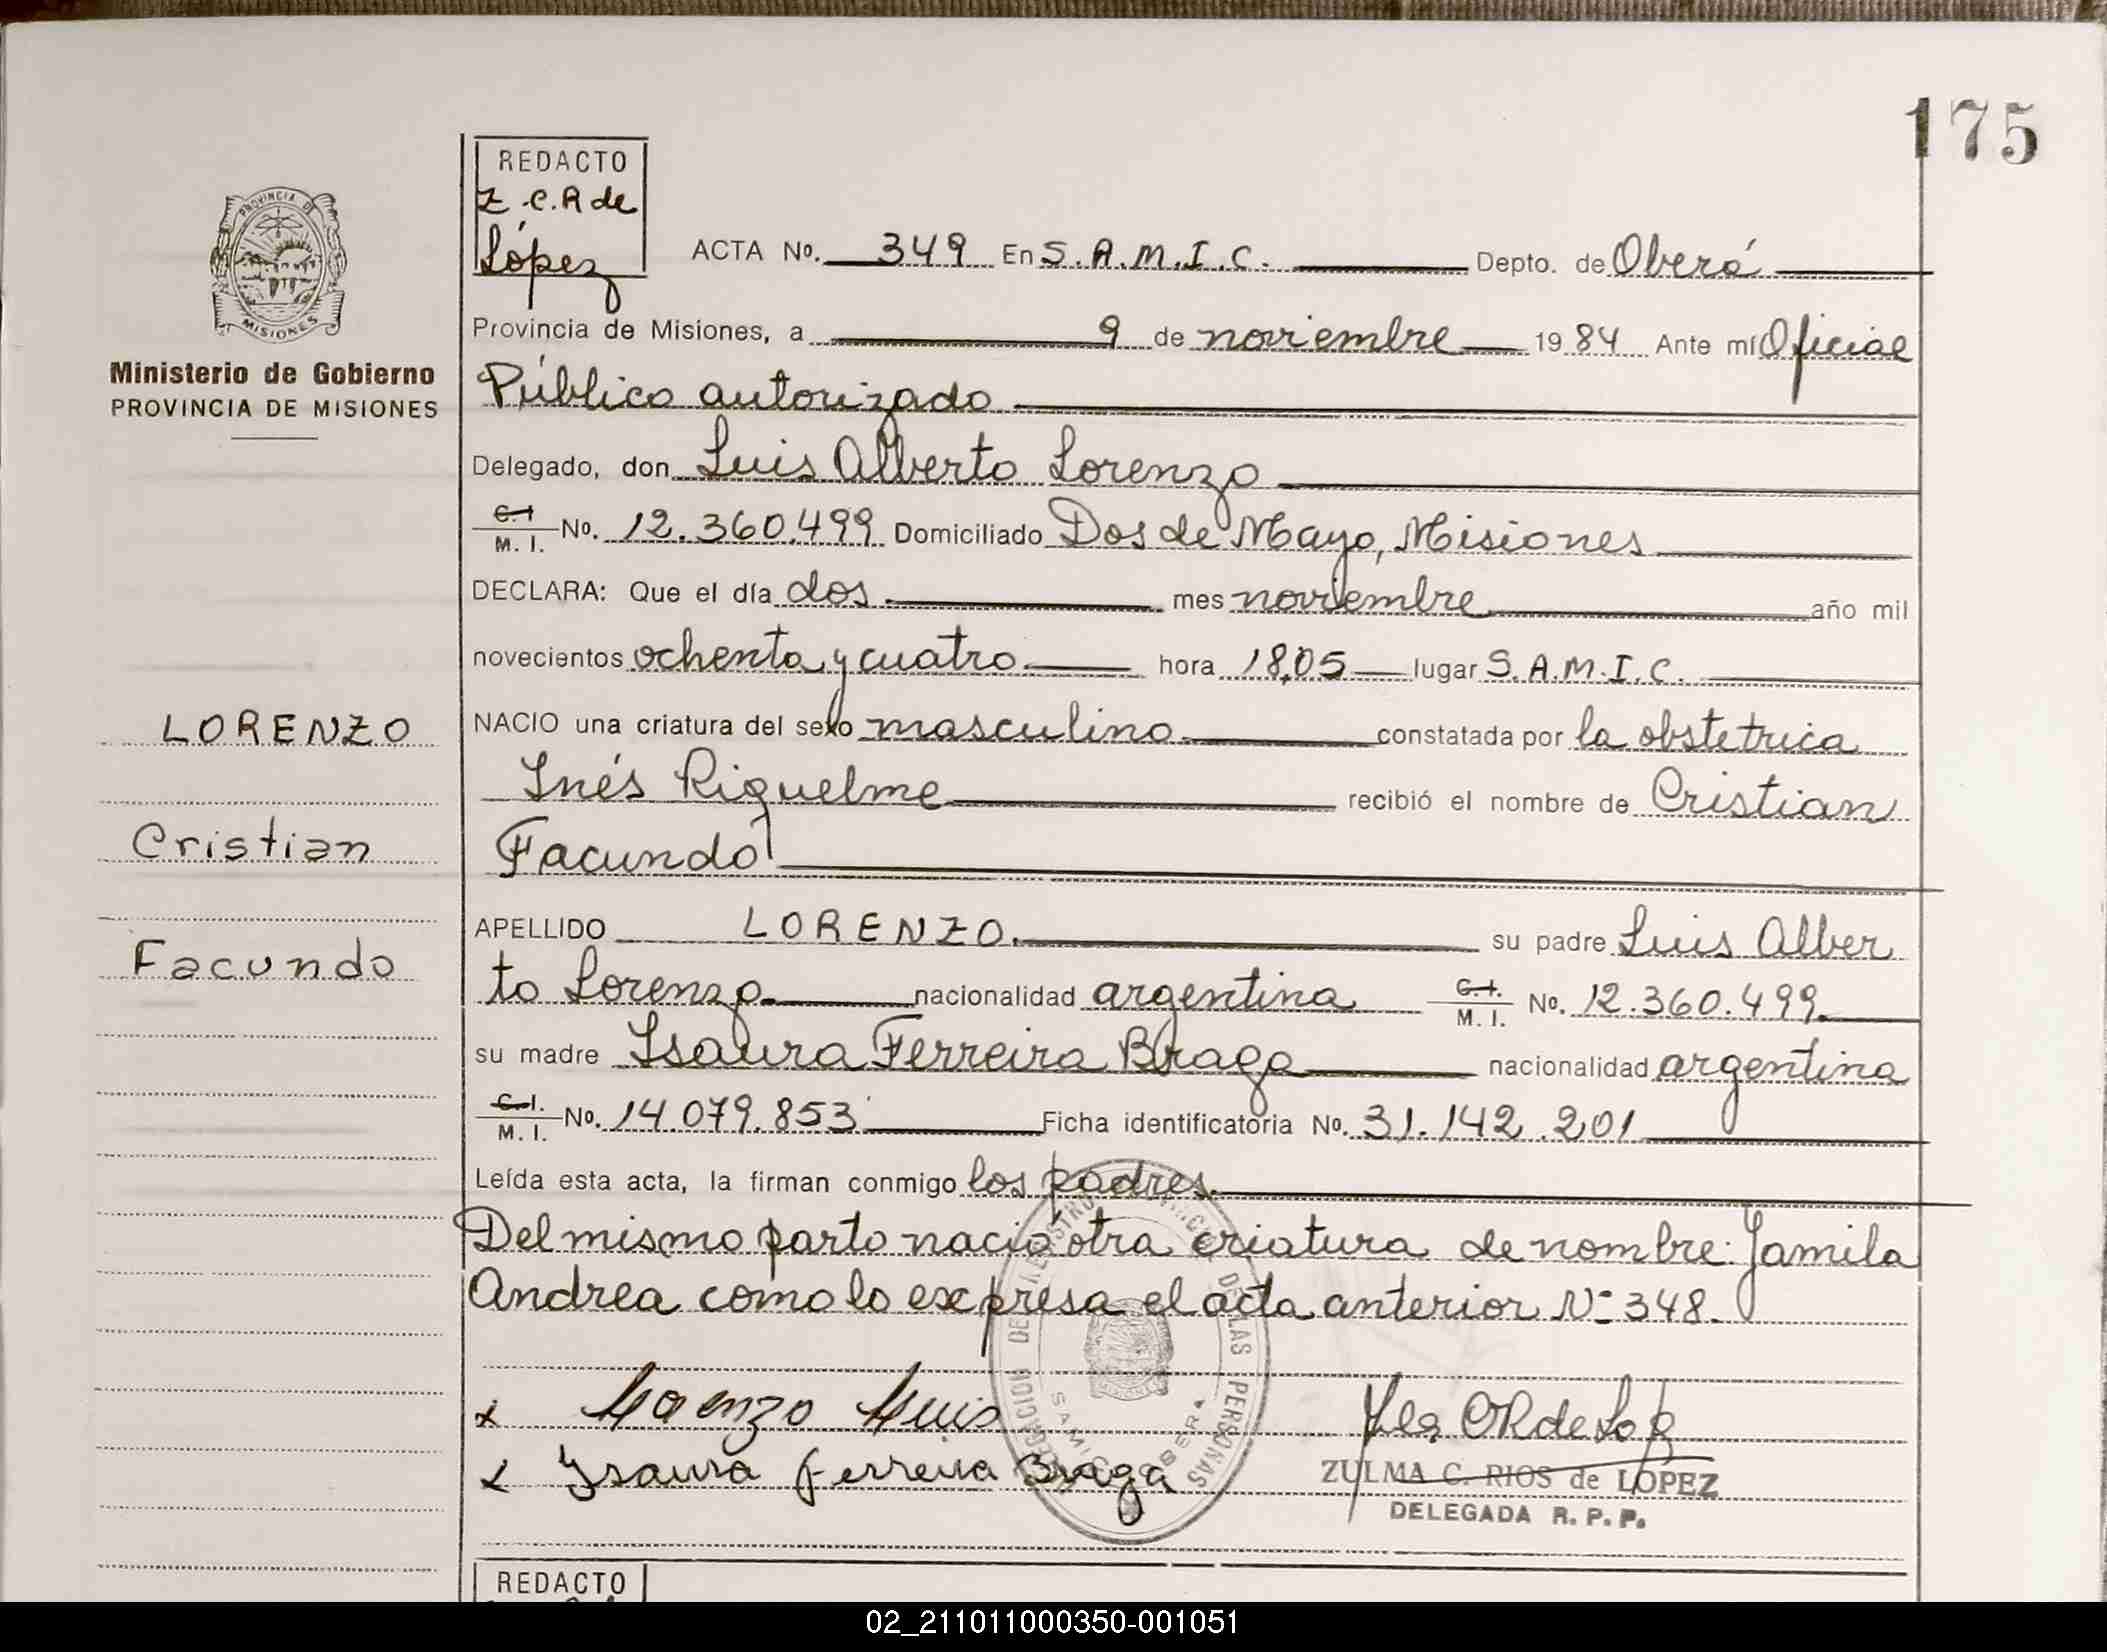 175
REDACTO
Z.C.R de
López
ACTA No. 349 En S.A.M.I.C. Depto. de Oberá
PROVINCIA DE
MISIONES
Provincia de Misiones, a 9 de noviembre 19 84 Ante mí Oficial
Ministerio de Gobierno
PROVINCIA DE MISIONES
Público autorizado
Delegado, don Luis Alberto Lorenzo
C. I. M. I. No. 12.360.499 Domiciliado Dos de Mayo, Misiones
DECLARA: Que el día dos mes noviembre año mil
novecientos ochenta y cuatro hora 18,05 lugar S.A.M.I.C.
LORENZO
NACIO una criatura del sexo masculino constatada por la obstetrica
Inés Riquelme recibió el nombre de Cristian
Cristian
Facundo
APELLIDO LORENZO. su padre Luis Alber
Facundo
to Lorenzo nacionalidad argentina C. I. M. I. No. 12.360.499.
su madre Isaura Ferreira Braga nacionalidad argentina
C. I. M. I. No. 14.079.853 Ficha identificatoria No. 31.142.201
Leída esta acta, la firman conmigo los padres.
Del mismo parto nació otra criatura de nombre: Jamila
Andrea como lo expresa el acta anterior Nº 348.
DELEGACION DE LAS PERSONAS
SAMIC OBERA
x Lorenzo Luis
x Ysaura Ferreira Braga
ZULMA C. RIOS de LOPEZ
DELEGADA R. P. P.
REDACTO
02_211011000350-001051